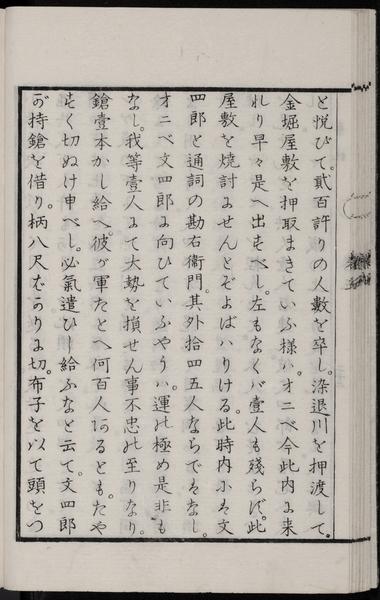 と悦びて。貳百許りの人數を卒し。染退川を押渡して。
金堀屋敷を押取まきていふ様ハ。オニベ今此内に来
れり早々是へ出すべし。左もなくバ壹人も殘らず。此
屋敷を焼討にせんとぞよばハりける。此時内にも文
四郎と通詞の勘右衛門。其外拾四五人ならでハなし。
オニベ文四郎に向ひていふやうハ。運の極め是非も
なし。我等壹人にて大勢を損せん事不忠の至りなり。
鎗壹本かし給へ。彼が軍たとへ何百人あるとも。たや
すく切ぬけ申べし。必氣遣ひし給ふなと云て。文四郎
が持鎗を借り。柄八尺ばかりに切。布子を以て頭をつ